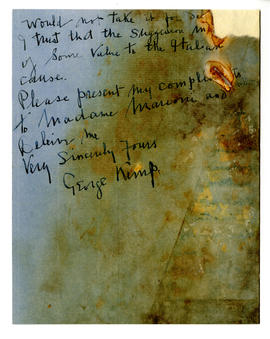 Would not take it for
I trust that the Suggestion
of Some Value to the Italian
cause.
Please present my
to Madame Marconi and
Believe me
Very Sincerely Yours
George Kemp.